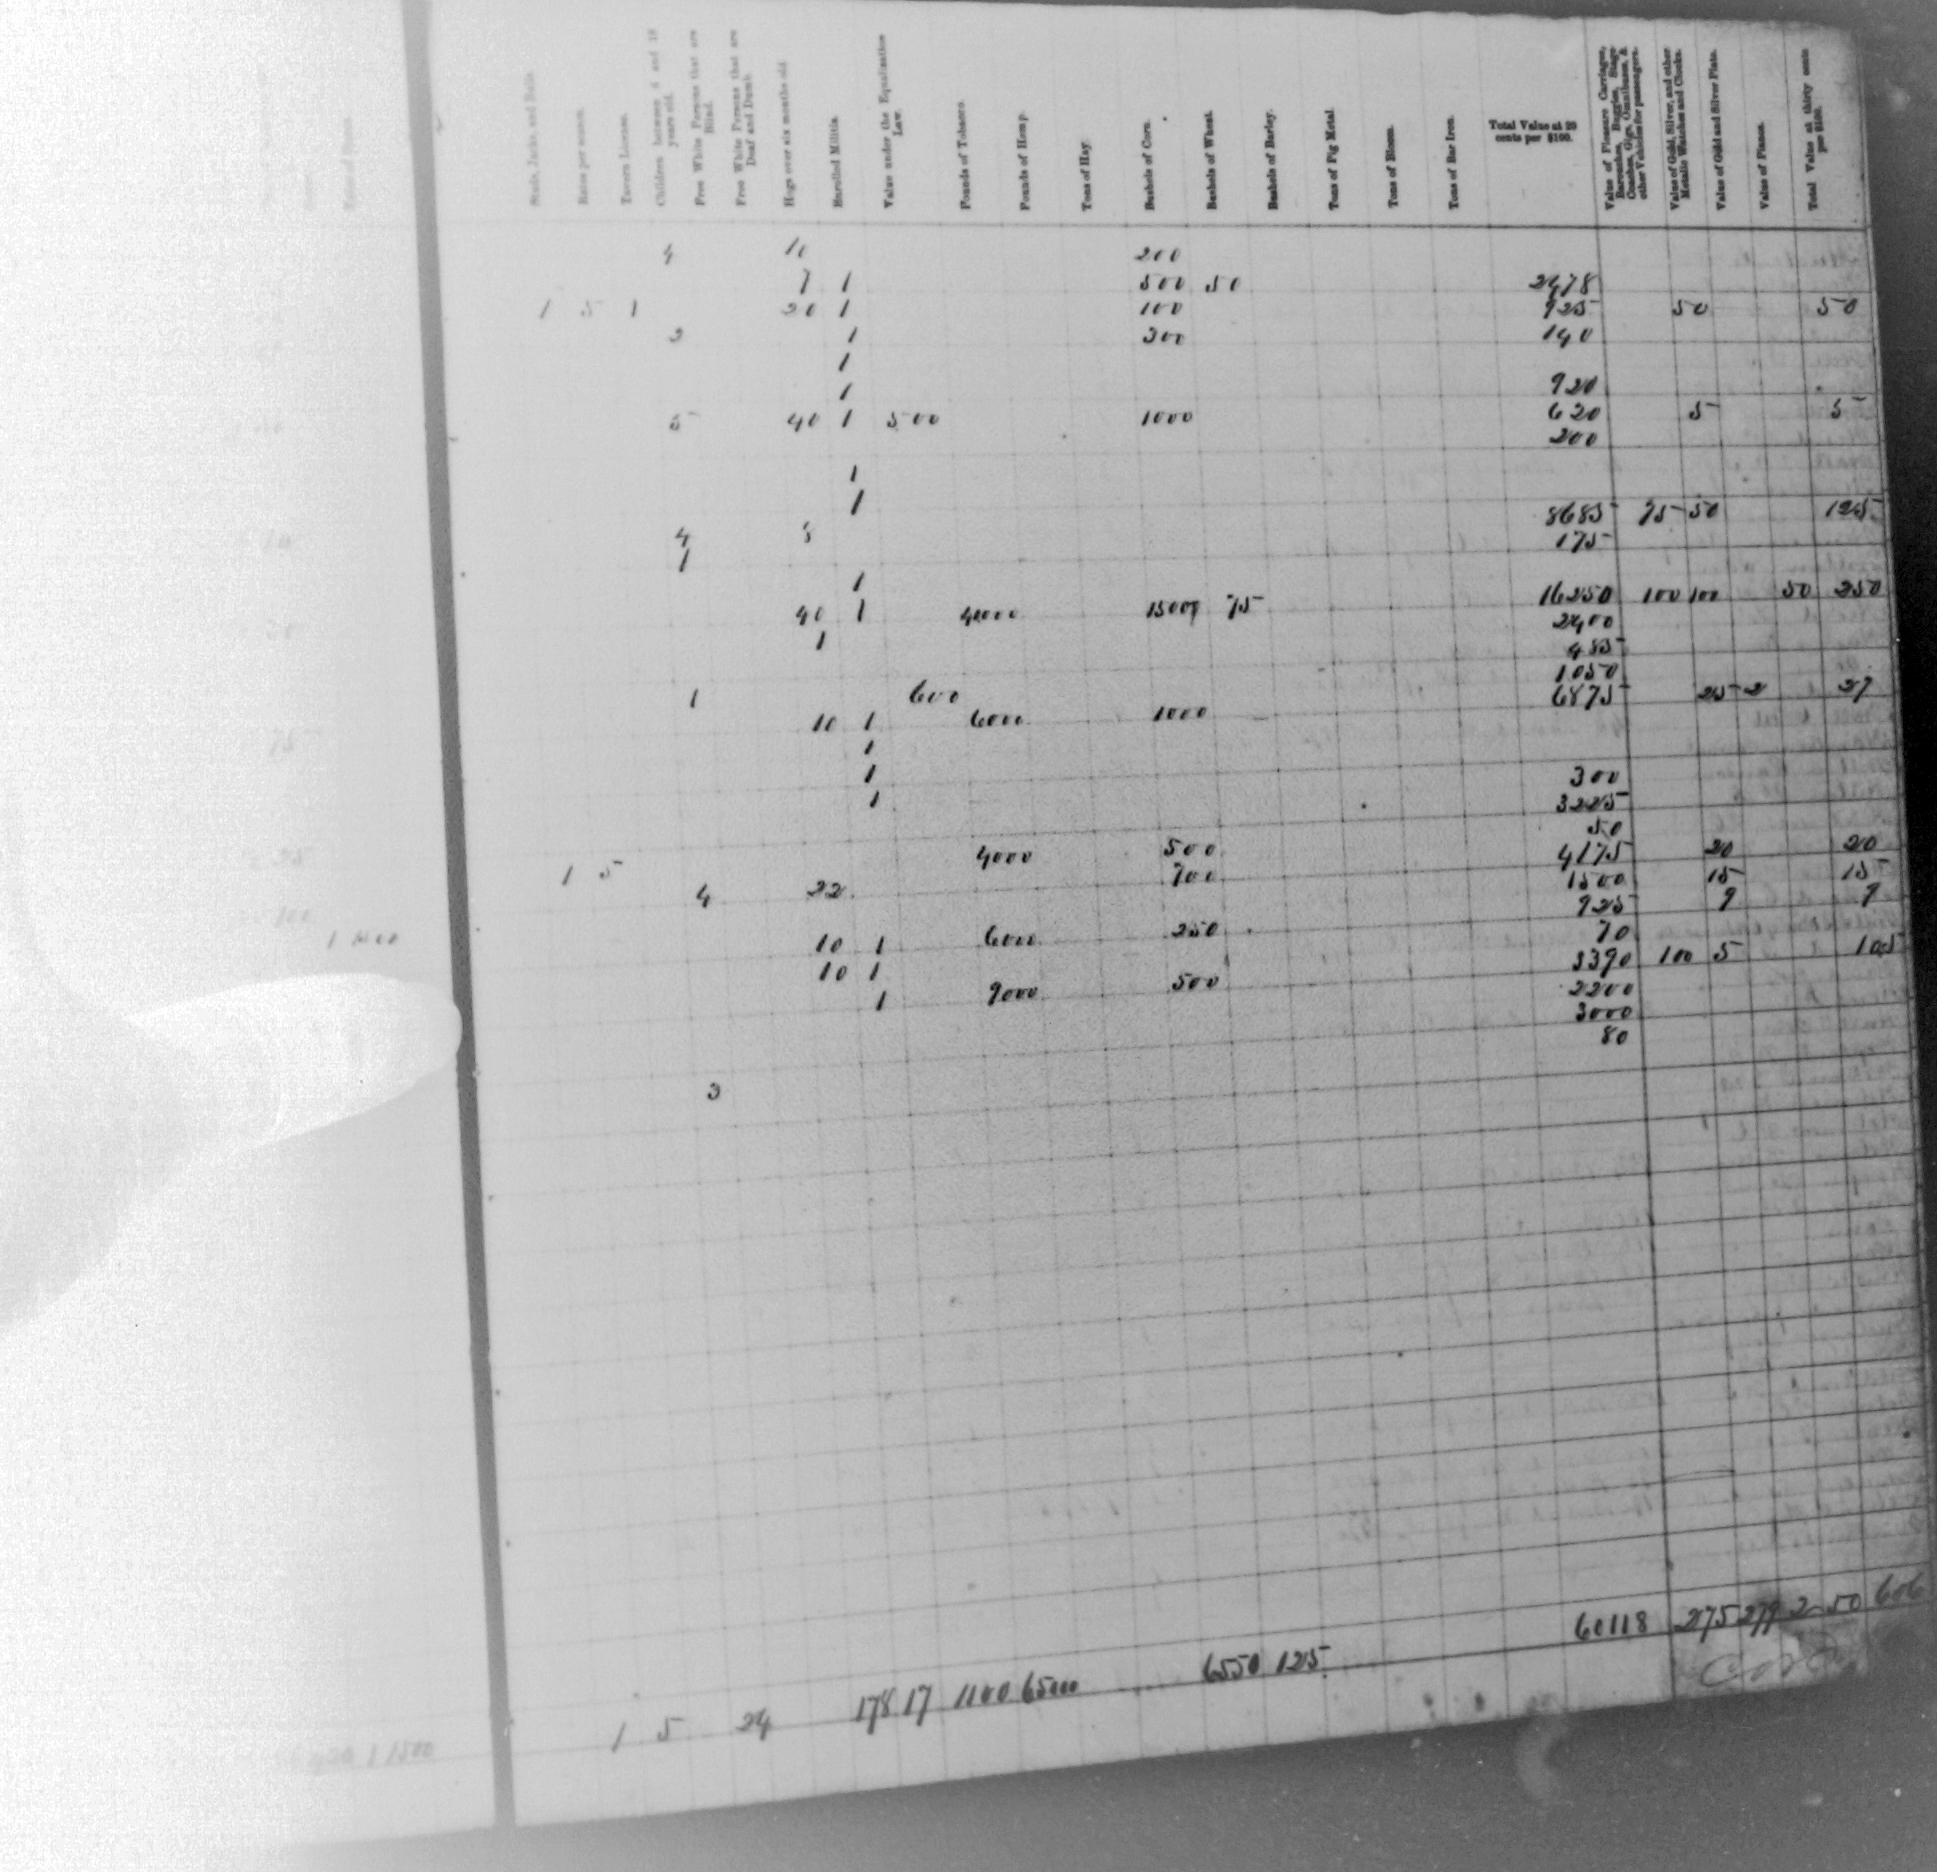 Studs, Jacks, and Bulls.
Rates per season.
Tavern License.
Children between 6 and 18 years old.
Free White Persons that are Blind.
Free White Persons that are Deaf and Dumb.
Hogs over six months old
Enrolled Militia.
Value under the Equalization Law.
Pounds of Tobacco.
Pounds of Hemp.
Tons of Hay
Bushels of Corn.
Bushels of Wheat.
Bushels of Barley.
Tons of Pig Metal
Tons of Blooms.
Tons of Bar Iron.
Total Value at 20 cents per $100.
Value of Pleasure Carriages, Barouches, Buggies, Stage Coaches, Gigs, Omnibuses, & other Vehicles for passengers.
Value of Gold, Silver, and other Metalic Watches and Clocks.
Value of Gold and Silver Plate.
Value of Pianos.
Total Value at thirty cents per $100.
4 10 200
7 1 500 50 2478
1 5 1 20 1 100 925 50 50
3 1 300 140
1
1 920
5 40 1 500 1000 620 5 5
200
1
1
8685 75 50 125
4 8 175
1
1 16250 100 100 50 250
40 1 40000 1500 75 2400
1 485
1050
1 600 6875 25 2 27
10 1 6000 1000
1
1 300
1 3225
50
4000 500 4175 20 20
1 5 700 1500 15 15
4 22 925 9 9
10 1 6000 250 70
10 1 3390 100 5 105
1 9000 500 2200
3000
80
3
60118 275 279 2 50 606
1 5 24 178 17 1100 65000 6550 125